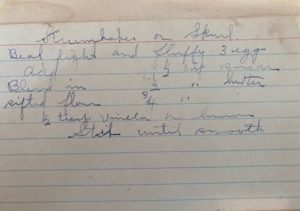 Krumkakes or Skrul
Beat light and fluffy 3 egg
Add ½ cup sugar
Blend in ½ " butter
sifted flour ¾ "
½ teasp vinela or lemon
Stir until smooth